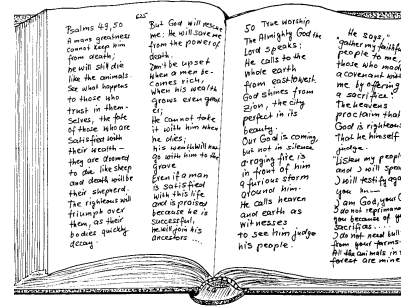 625
Psalms 49,50
A mans greatness
cannot keep him
from death;
he will still die
like the animals.
See what happens
to those who
trust in them-
selves, the fate
of those who are
satisfied with
their wealth —
they are doomed
to die like sheep
and death will be
their shepherd.
The righteous will
triumph over
them, as their
bodies quickly
decay.
But God will rescue
me; He will save me
from the power of
death.
Dont be upset
when a man be-
comes rich,
when his wealth
grows even great
er;
He cannot take
it with him when
he dies;
his wealth will not
go with him to the
grave
Even if a man
is satisfied
with this life
and is praised
because he is
successful,
he will join his
ancestors ....
50 True worship
The Almighty God the
Lord speaks;
He calls to the
whole earth
from east to west.
God shines from
Zion, the city
perfect in its
beauty.
Our God is coming,
but not in silence
a raging fire is
in front of him
a furious storm
around him.
He calls heaven
and earth as
witnesses
to see him judge
his people.
He says,
"gather my faithful
people to me,
those who made
a covenant with
me by offering
a sacrifice."
The heavens
proclaim that
God is righteous
That he himself
judge.
"Listen my people
and I will speak
I will testify
you
I am God, your
I do not reprimand
you because of
sacrifices....
I do not need bull
from your farms
All the animals in
forest are mine